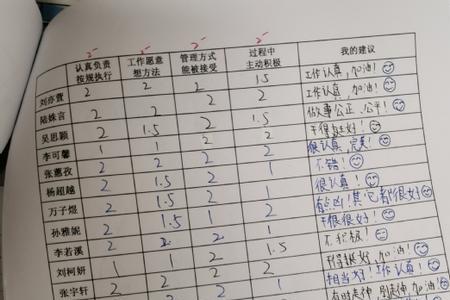 认真负责 按规执行 工作愿意 想方法 管理方式 能被接受 过程中 主动积极 我的建议
刘亦萱 2 2 2 1.5 工作认真，加油！
陆姝言 2 2 2 2 工作认真，加油！
吴思颖 2 1.5 2 1.5 做事公正、公平！
李可馨 1 1 2 2 干得挺好！
张蕙孜 2 2 2 2 很认真，完美！
杨超越 2 1.5 2 2 不错！
万子煜 2 1.5 2 很认真！
孙雅妮 2 1.5 1 2 有点凶！其它都很好
李若溪 2 2 2 1 干得很好！
刘柯妍 1 1 2 1.5 不积极！
张宇轩 2 2 2 2 很好，加油！
相当好！工作认真！